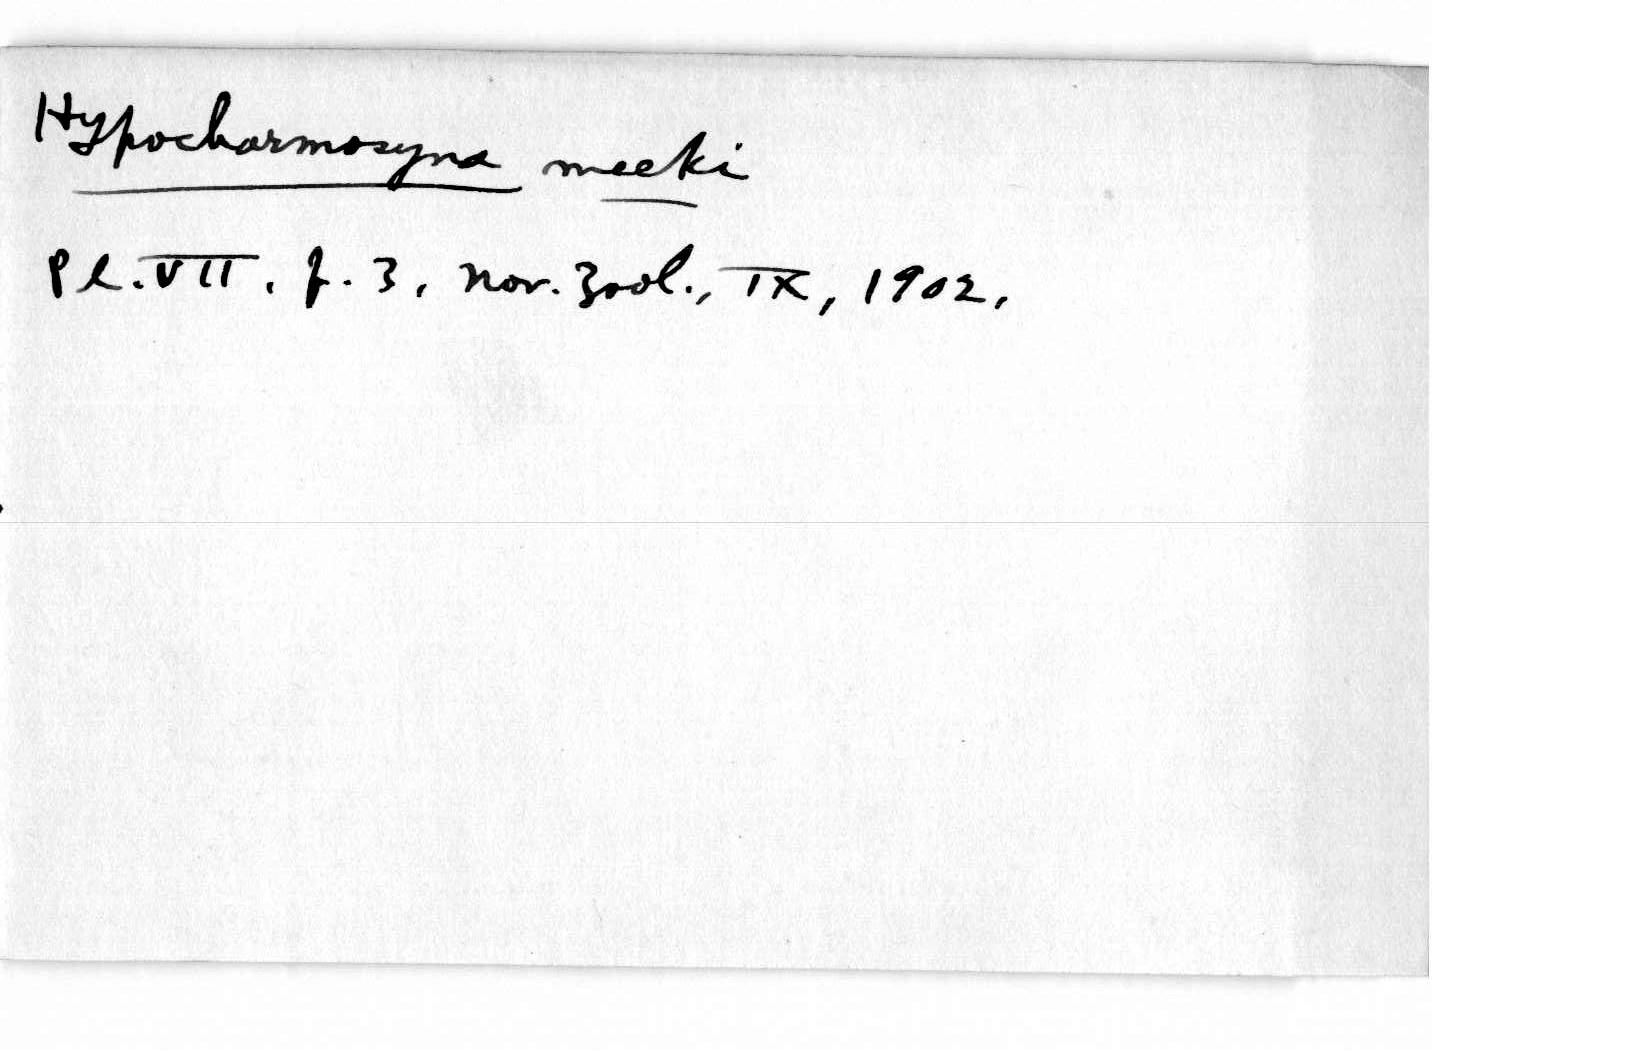 Hypocharmosyna meeki
Pl. VII. f. 3, Nov. Zool., IX, 1902.